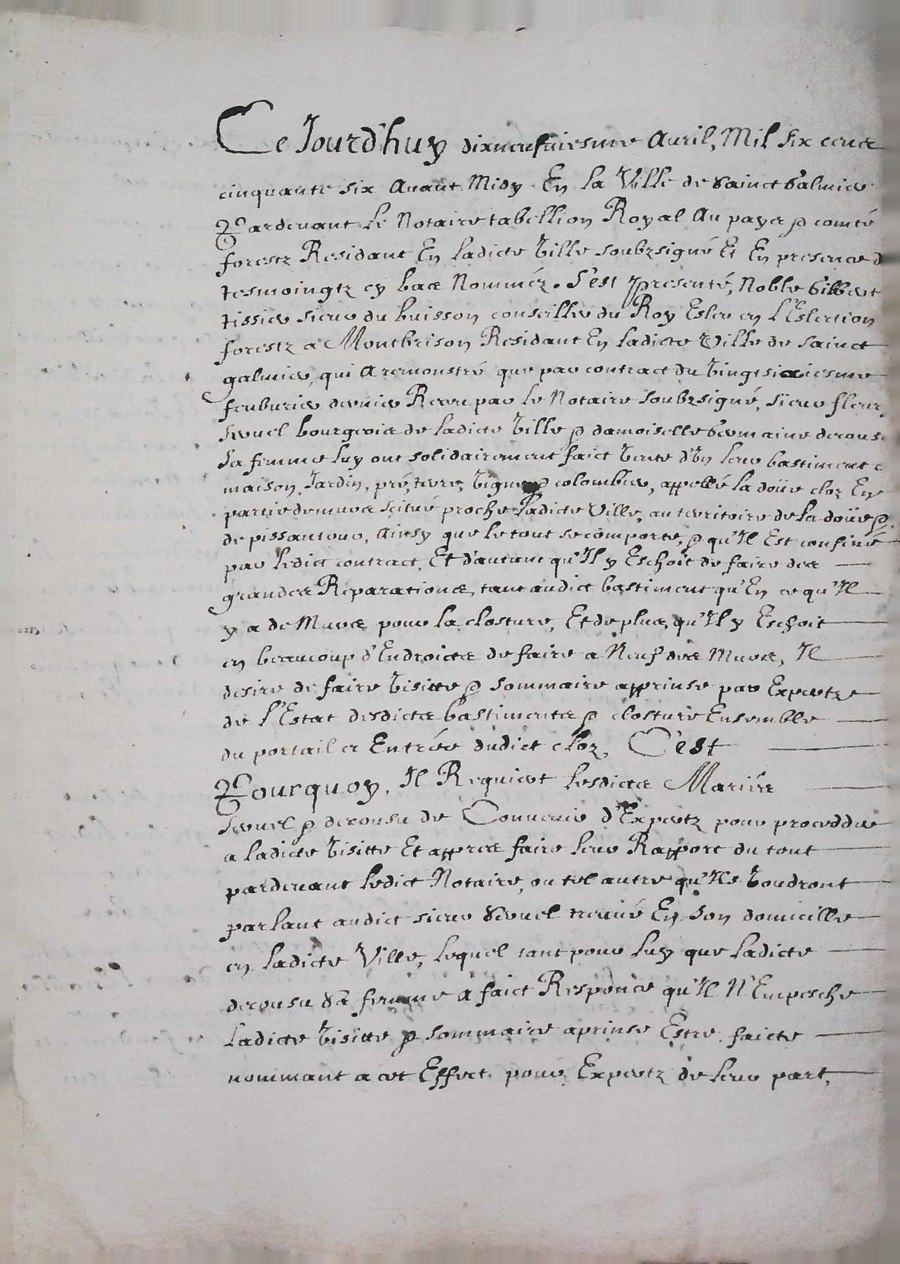 Ce Jourd'huy dixneufuiesme Auril, Mil six cens
cinquante six Auant Midy En la Ville de Sainct Galmier
Pardeuant Le Notaire tabellion Royal Au pays & comté
forestz Residant En ladicte Ville soubzsigné Et En presence d
tesmoingtz cy bas Nommez. S'est presenté, Noble Gilbert
tissier sieur du buisson conseillier du Roy Esleu en L'Eslection
forestz a Montbrison Residant En ladicte Ville de Sainct
galmier, qui A remonstré que par contract du Vingtsixiesme
feuburier dernier Receu par le Notaire soubzsigné, sieur fleury
bourgeois de ladicte Ville & damoiselle Germaine decousu
sa femme luy ont solidairement faict Vente d'Vn leur bastiment
maison, Jardin, pré, terre, Vigne & colombier, appellé la doüe cloz En
partie de murs scitué proche ladicte Ville, au territoire de la doüe &
de pissantour, Ainsy que le tout se comporte, & qu'Il Est confiné
par ledict contract, Et d'autant qu'Il y Eschoit de faire des
grandes Reparations, tant audict bastiment qu'En ce qu'Il
y a de Murs pour la closture, Et de plus, qu'Il y Eschoit
en beaucoup d'Endroictz de faire a Neuf des Murs, Il
desire de faire Visitte & sommaire apprinse par Expertze
de L'Estat desdictz bastimentz & closture Ensemble
du portail et Entrée dudict cloz, C'est
Pourquoy, Il Requiert lesdictz Mariés
& decousu de Conuenir d'Expertz pour procedder
a ladicte Visitte Et appres faire leur Rapport du tout
pardeuant ledict Notaire, ou tel autre qu'Ils Voudront
parlant audict sieur treuué En son domicille
en ladicte Ville, lequel tant pour luy que ladicte
decousu sa femme a faict Responce qu'Il N'Empesche
Ladicte Visitte & sommaire aprinse Estre faicte
nommant a cet Effect pour Expertz de leur part,